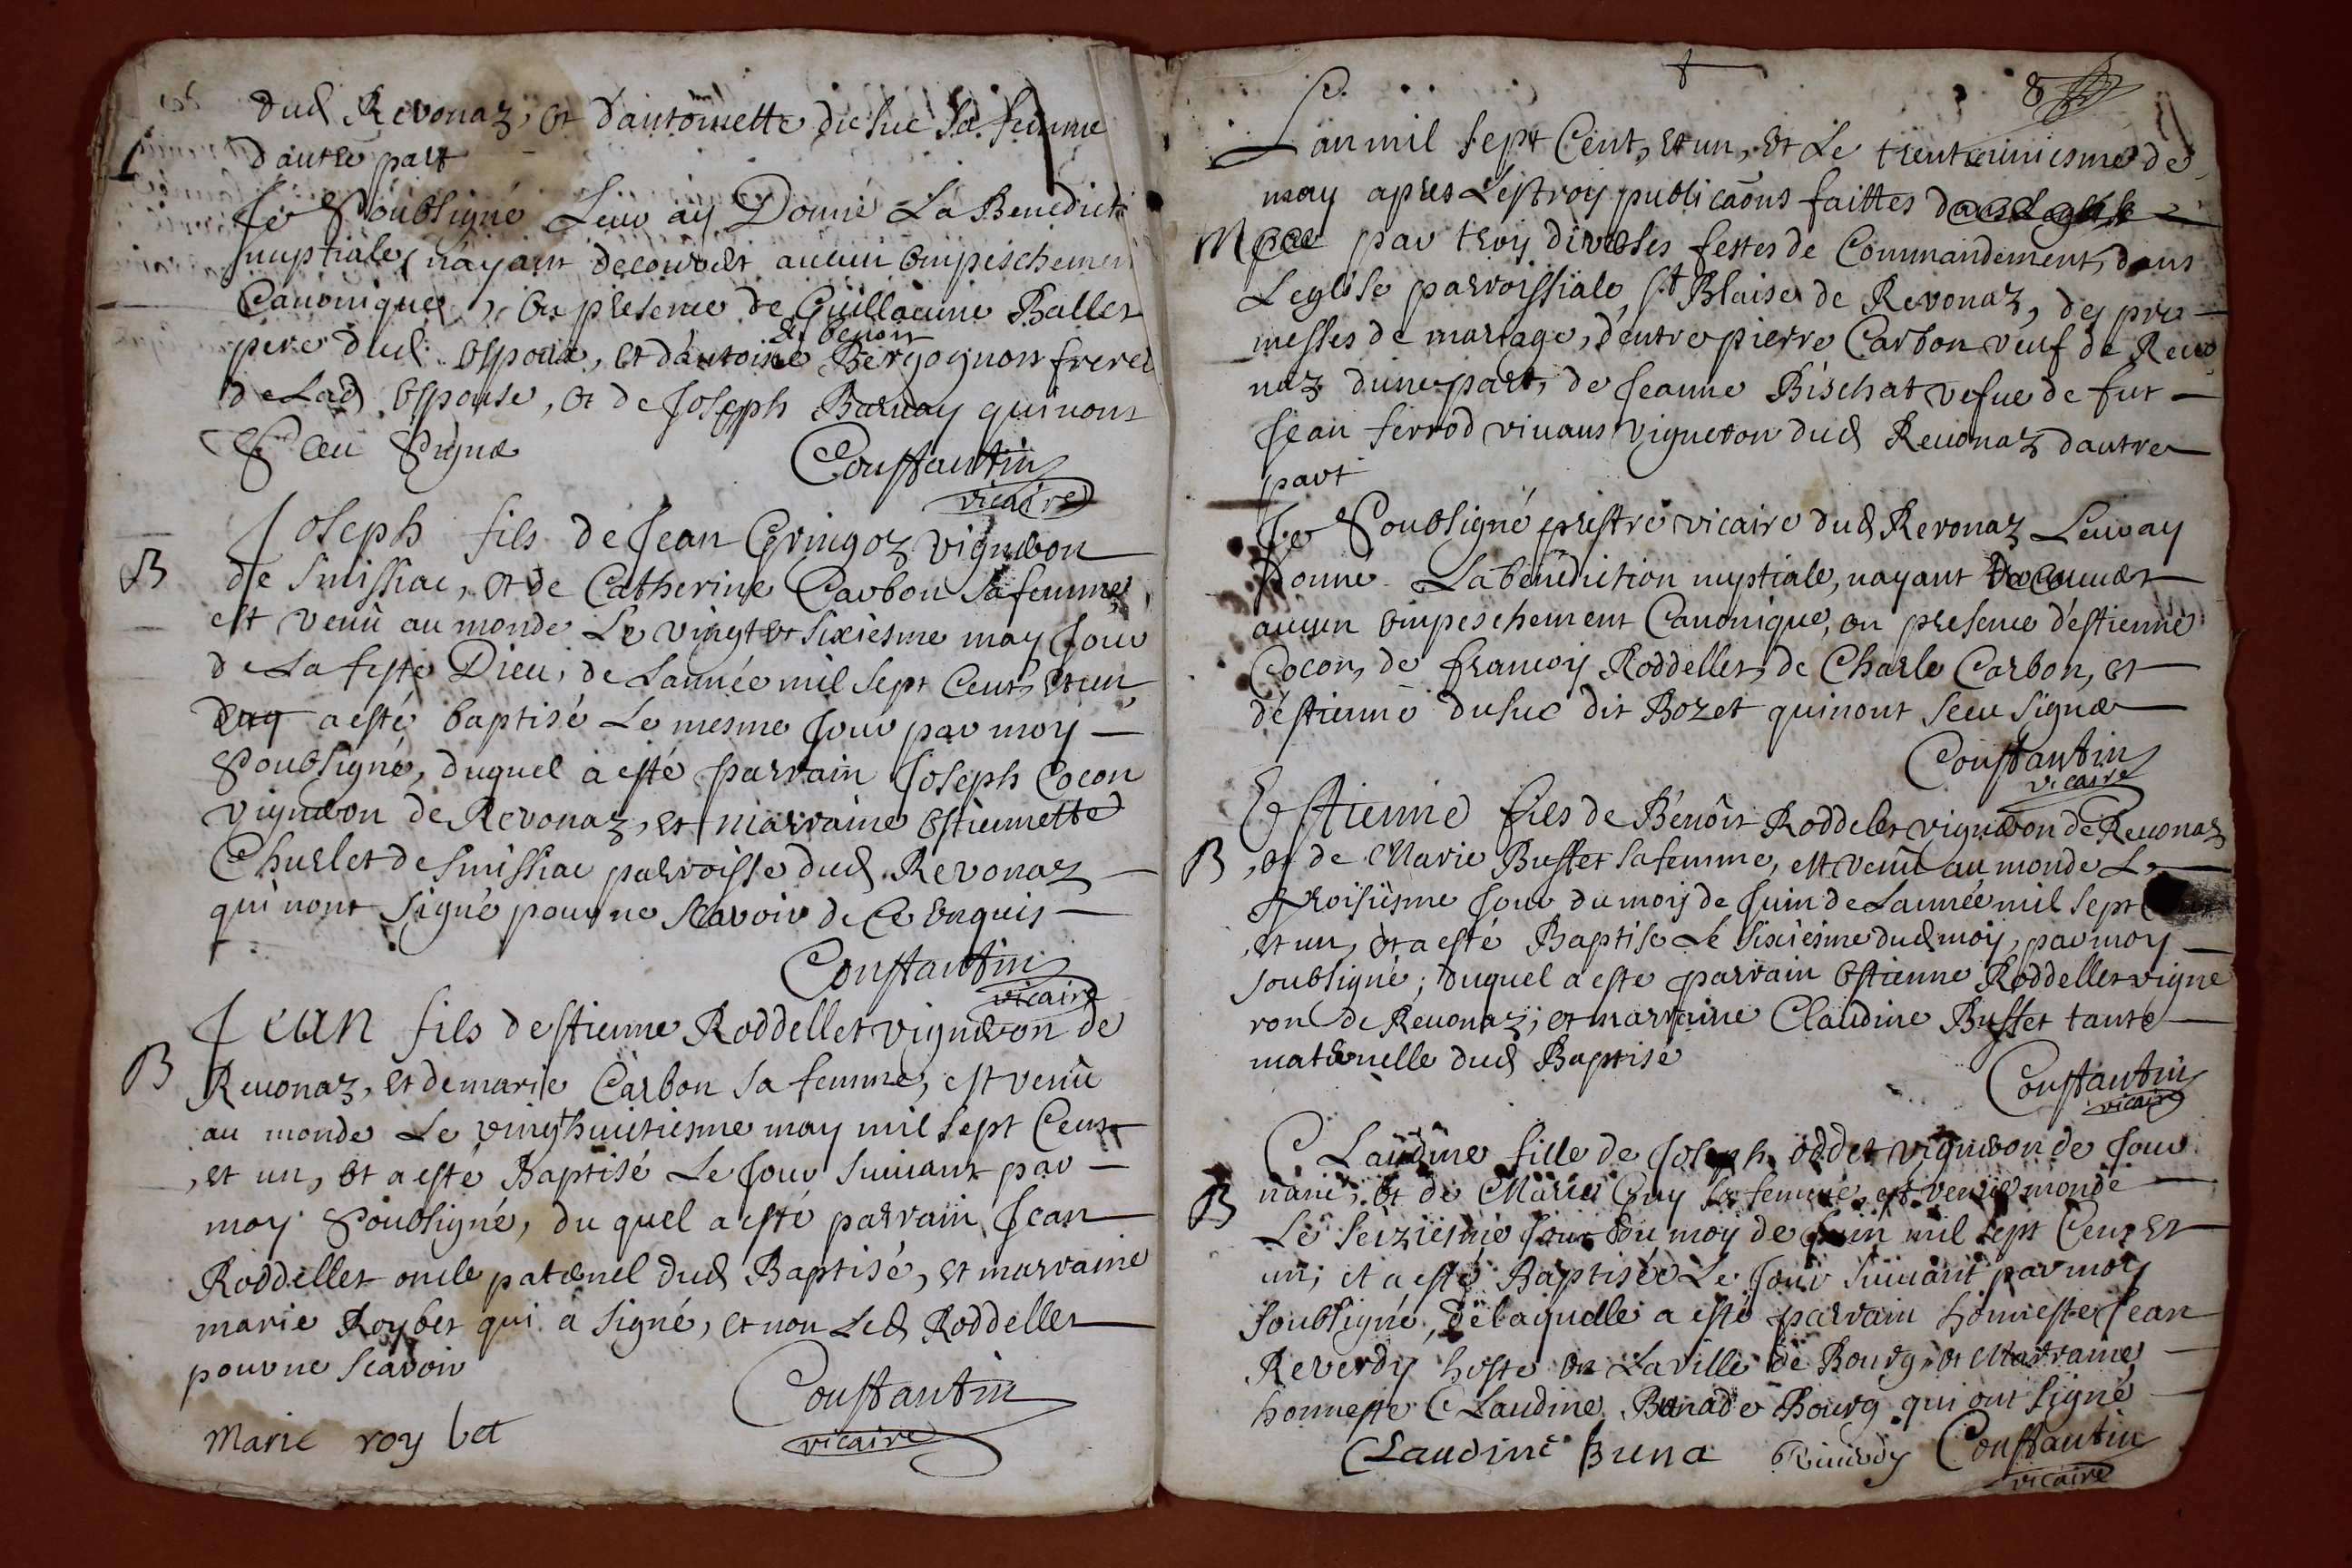 dud Revonaz, et dantoinette du suc sa femme
dautre part
Je Soubsigné Leur ay Donné La Benedict
nuptiale, nayant decouvert aucun empeschement
Canonique, en presence de Guillaume Ballet
et benoit
pere dud. espoux, et dantoine Bergognon freres
de Lad espouse, et de Joseph Barnay qui nont
Sceu Signe
Constantin
vicaire
B
Joseph fils de Jean Gringoz vigneron
de Smissiac, et de Catherine Carbon sa femme
est venû au monde Le vingt et sixiesme may Jour
de La feste Dieu, de Lannée mil sept Cent, et un,
a esté baptisé Le mesme Jour par moy
Soubsigné, duquel à esté parrain Joseph Cocon
vigneron de Revonaz, et marraine Estiennette
Churlet de Smissiac parroisse dud. Revonaz
qui nont signé pour ne scavoir de Ce enquis
Constantin
vicaire
B
Jean fils destienne Roddellet vigneron de
Reuonaz, et de marie Carbon sa femme, est venû
au monde Le vingthuitiesme may mil sept Cent
, et un, et a esté Baptisé Le Jour suiuant par
moy Soubsigné, du quel a esté parrain Jean
Roddellet oncle paternel dud Baptisé, et marraine
marie Roybet qui a signé, et non Led Roddellet
pour ne scavoir
Marie roy bet
Constantin
vicaire
8
Lan mil sept Cent, et un, et Le trenteuniesme de
may apres Les troy publicaôns faittes
M
par troy diverses festes de Commandement, dans
Leglise parroissiale, St Blaise de Revonaz, des pro
messes de mariage, dentre pierre Carbon veuf de Reuo
naz dune part, de Jeanne Bischat vefue de fut
Jean ferrod viuant vigneron dud Reuonaz dautre
part
Je Soubsigné prestre vicaire dud Revonaz Leur ay
Donné La benediction nuptiale, nayant decouuert
aucun empeschement Canonique, en presence destienne
Cocon, de francoy Roddellet, de Charle Carbon, et
destienne dusuc dit Bozet qui nont sceu signer
Constantin
vicaire
B
Estienne fils de Benoit Roddelet vigneron de Reuonaz
, et de Marie Buffet sa femme, est venû au monde Le
troisiesme Jour du moy de Juin de Lannée mil sept
, et un, et a esté Baptisé Le sixiesme dud moy, par moy
soubsigné; duquel a esté parrain Estienne Roddellet vigne
ron de Reuonaz, et marraine Claudine Buffet tante
maternelle dud Baptisé
Constantin
vicaire
B
Claudine fille de Joseph oddet vigneron de Jour
nané, et de Marie Guy sa femme, est venüe monde
Le seiziesme Jour du moy de Juin mil sept Cent et
un; et a esté Baptisée Le Jour suiuant par moy
soubsigné, de laquelle a esté parrain honneste Jean
Reverdy hoste en La ville de Bourg, et Marraine
honneste Claudine Buna de Bourg qui ont signé
Claudine Buna Reuerdy Constantin
vicaire